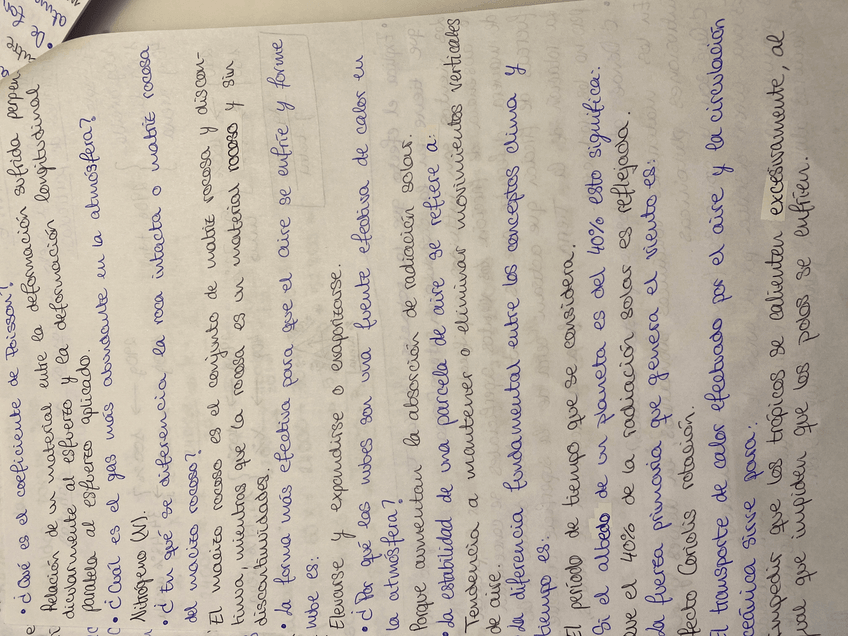 • ¿Qué es el coeficiente de Poisson?
Relación de un material entre la deformación sufrida perpen
dicularmente al esfuerzo y la deformación longitudinal
paralela al esfuerzo aplicado.
• ¿Cuál es el gas más abundante en la atmósfera?
Nitrógeno (N).
• ¿En qué se diferencia la roca intacta o matriz rocosa
del macizo rocoso?
El macizo rocoso es el conjunto de matriz rocosa y discon-
tinua, mientras que la rocosa es un material rocoso y sin
discontinuidades.
• La forma más efectiva para que el aire se enfríe y forme
nube es:
Elevarse y expandirse o evaporizarse.
• ¿Por qué las nubes son una fuente efectiva de calor en
la atmósfera?
Porque aumentan la absorción de radiación solar.
• La estabilidad de una parcela de aire se refiere a:
Tendencia a mantener o eliminar movimientos verticales
de aire.
La diferencia fundamental entre los conceptos clima y
tiempo es:
El periodo de tiempo que se considera.
Si el albedo de un planeta es del 40% esto significa:
que el 40% de la radiación solar es reflejada.
La fuerza primaria que genera el viento es:
fecto Coriolis rotación.
El transporte de calor efectuado por el aire y la circulación
ceánica sirve para:
mpedir que los trópicos se calienten excesivamente, al
ual que impiden que los polos se enfríen.